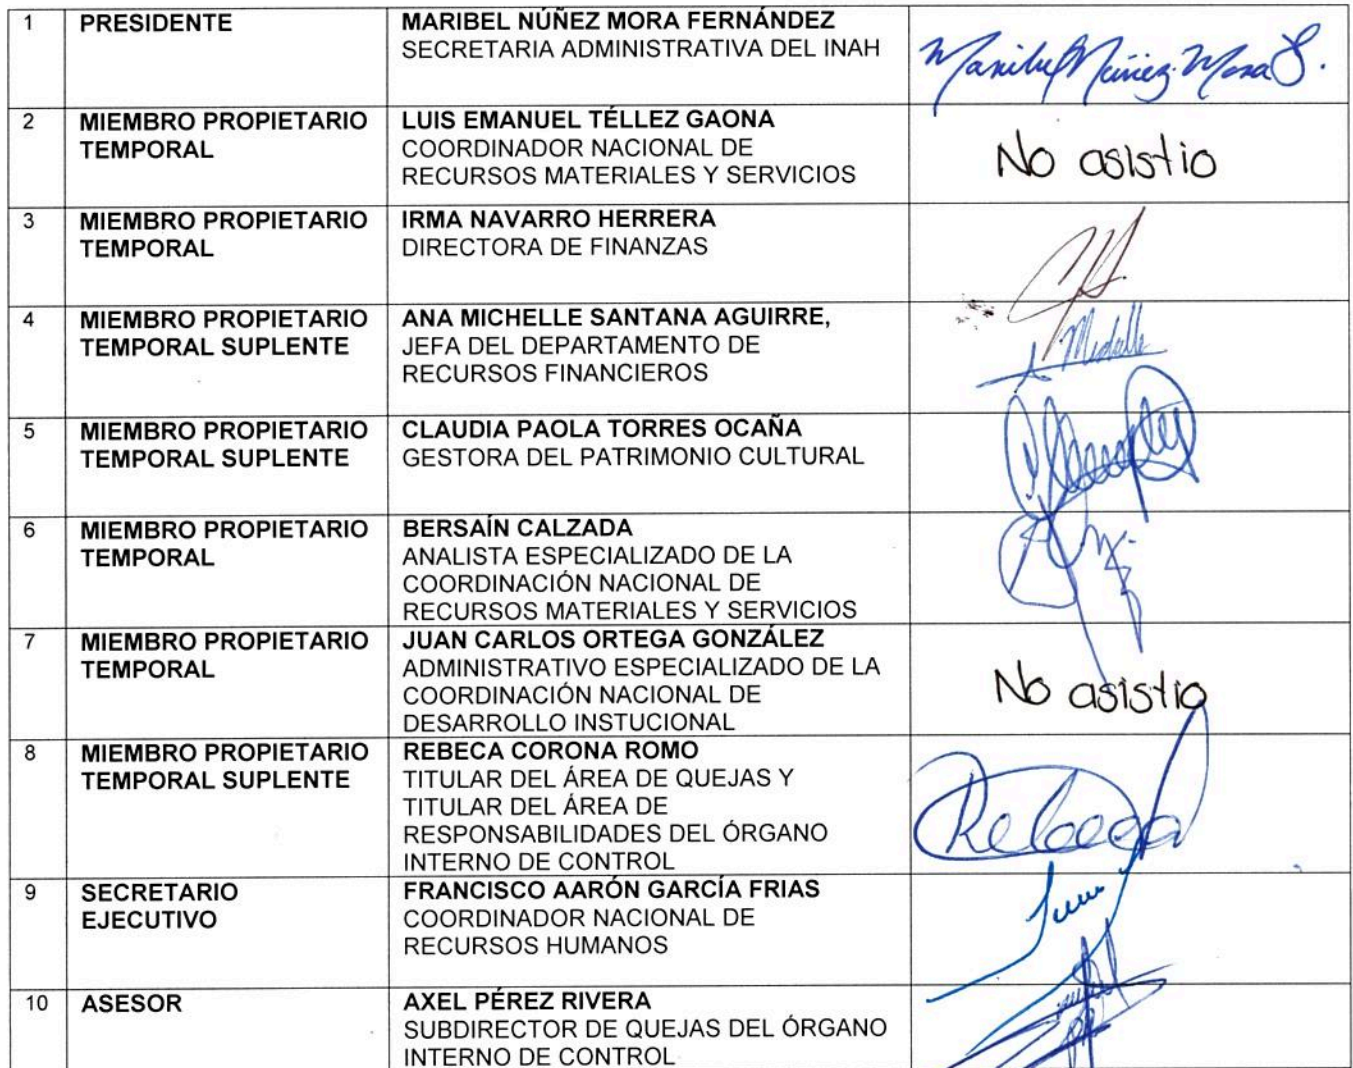 1 PRESIDENTE MARIBEL NÚÑEZ MORA FERNÁNDEZ
SECRETARIA ADMINISTRATIVA DEL INAH
Maribel Núñez Mora F.
2 MIEMBRO PROPIETARIO TEMPORAL LUIS EMANUEL TÉLLEZ GAONA
COORDINADOR NACIONAL DE
RECURSOS MATERIALES Y SERVICIOS
No asistio
3 MIEMBRO PROPIETARIO TEMPORAL IRMA NAVARRO HERRERA
DIRECTORA DE FINANZAS
4 MIEMBRO PROPIETARIO TEMPORAL SUPLENTE ANA MICHELLE SANTANA AGUIRRE,
JEFA DEL DEPARTAMENTO DE
RECURSOS FINANCIEROS
Michelle
5 MIEMBRO PROPIETARIO TEMPORAL SUPLENTE CLAUDIA PAOLA TORRES OCAÑA
GESTORA DEL PATRIMONIO CULTURAL
6 MIEMBRO PROPIETARIO TEMPORAL BERSAÍN CALZADA
ANALISTA ESPECIALIZADO DE LA
COORDINACIÓN NACIONAL DE
RECURSOS MATERIALES Y SERVICIOS
7 MIEMBRO PROPIETARIO TEMPORAL JUAN CARLOS ORTEGA GONZÁLEZ
ADMINISTRATIVO ESPECIALIZADO DE LA
COORDINACIÓN NACIONAL DE
DESARROLLO INSTUCIONAL
No asistio
8 MIEMBRO PROPIETARIO TEMPORAL SUPLENTE REBECA CORONA ROMO
TITULAR DEL ÁREA DE QUEJAS Y
TITULAR DEL ÁREA DE
RESPONSABILIDADES DEL ÓRGANO
INTERNO DE CONTROL
Rebeca
9 SECRETARIO EJECUTIVO FRANCISCO AARÓN GARCÍA FRIAS
COORDINADOR NACIONAL DE
RECURSOS HUMANOS
10 ASESOR AXEL PÉREZ RIVERA
SUBDIRECTOR DE QUEJAS DEL ÓRGANO
INTERNO DE CONTROL